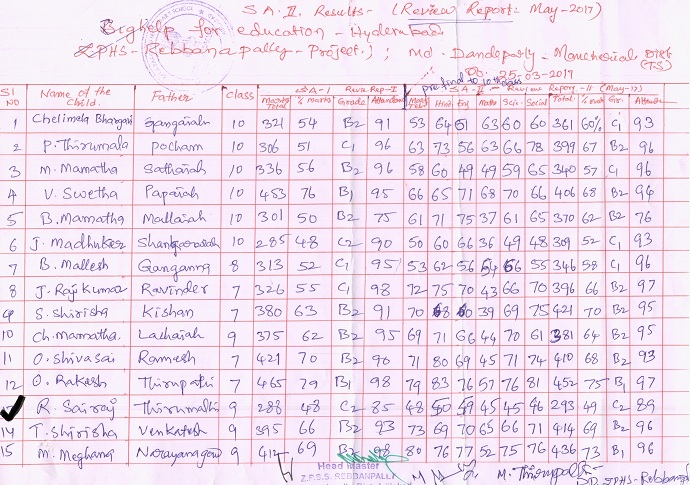 SA-II. Results- (Review Report: May-2017)
Bighelp for education - Hyderabad.
ZPHS-Rebbanapally-Project.); Md. Dandepally-Mancherial Dist (TS)
Dt. 25-03-2017
Sl NO Name of the Child. Father Class SA-I Reve Rep-I SA-II- Review Report-II (May-17)
Marks Total % Marks Grade Attendance Hind Eng Maths Scie Social Total % Gr. Attend
1 Chelimela Bhargavi Gangaiah 10 321 54 B2 91 53 64 51 63 60 60 361 60% C1 93
2 P. Thirumala Pocham 10 306 51 C1 96 63 73 56 63 66 78 399 67 B2 96
3 M. Mamatha Sathaiah 10 336 56 B2 96 58 60 49 49 59 65 340 57 C1 96
4 V. Swetha Papaiah 10 453 76 B1 95 66 65 71 68 70 66 406 68 B2 94
5 B. Mamatha Mallaiah 10 301 50 B2 75 61 71 75 37 61 65 370 62 B2 76
6 J. Madhukar 10 285 48 C2 90 50 60 66 36 49 48 309 52 C1 93
7 B. Mallesh Ganganna 8 313 52 C1 95 53 62 56 54 66 55 346 58 C1 96
8 J. Raj Kumar Ravinder 7 326 55 C1 98 72 75 70 43 66 70 396 66 B2 97
9 S. Shirisha Kishan 7 380 63 B2 91 70 68 60 39 69 75 421 70 B2 95
10 Ch. Mamatha. Lathaiah 9 375 62 B2 95 69 71 66 44 70 61 381 64 B2 95
11 O. Shivasai Ramesh 7 421 70 B2 90 71 80 69 45 71 74 410 68 B2 93
12 O. Rakash Thirupathi 7 465 79 B1 98 79 83 76 57 76 81 452 75 B1 97
R. Sairaj Thirumalli 9 288 48 C2 85 48 60 49 45 45 46 293 49 C2 89
14 T. Shirisha Venkatesh 9 395 66 B2 93 73 69 70 65 66 71 414 69 B2 96
15 M. Meghana Narayanagow 9 412 69 B2 98 80 76 77 52 75 76 436 73 B1 96
Head Master
Z.P.S.S. REBBANPALLY
M. Thirupathi
ZPHS-Rebbanpally